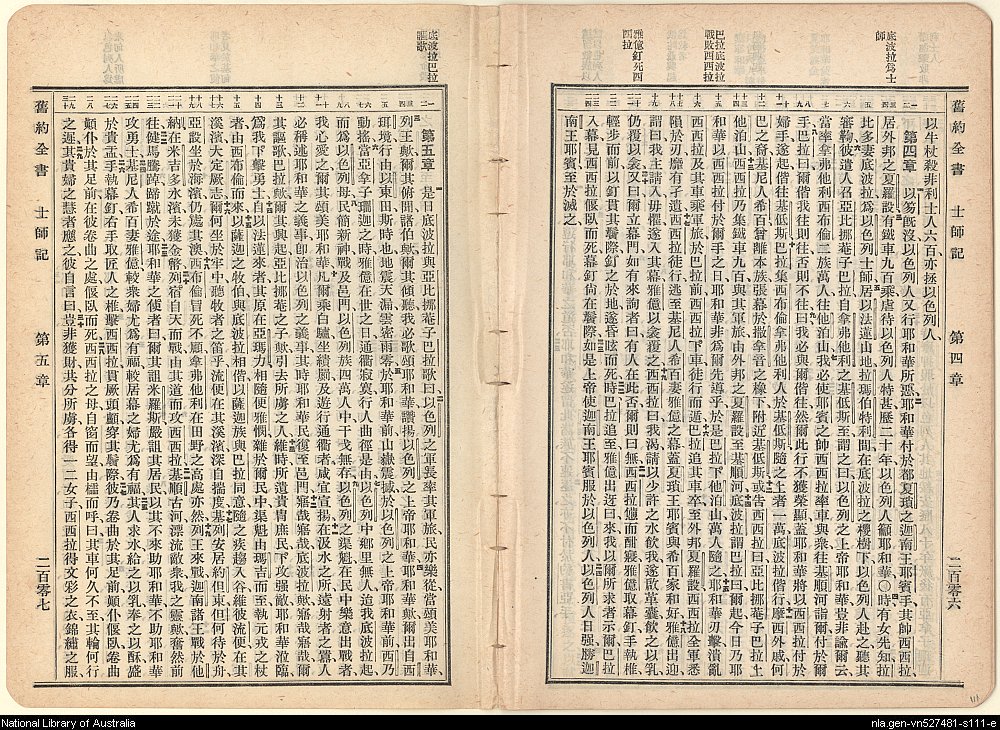 底波拉爲士師
巴拉底波拉戰敗西西拉
雅億釘死西西拉
舊約全書 士師記 第四章 二百零六
以牛杖殺非利士人六百亦拯以色列人
第四章 以笏旣沒以色列人又行耶和華所惡耶和華付於都夏瑣之迦南王耶賓手其帥西西拉
居外邦之夏羅設有鐵車九百乘虐待以色列人特甚歷二十年以色列人籲耶和華〇時有女先知拉
此多妻底波拉爲以色列士師居以法蓮山地拉瑪伯特利間在底波拉之椶樹下以色列人赴之聽其
審鞫彼遣人召亞比挪菴子巴拉自拿弗他利之基低斯至謂之曰以色列之上帝耶和華豈非諭爾云
當率拿弗他利西布倫二族萬人往他泊山我必使耶賓之帥西西拉率車與衆往基順河詣爾付於爾
手巴拉曰爾偕我往我則往否則不往曰我必與爾偕往然爾此行不獲榮顯蓋耶和華將以西西拉付於
婦手遂起偕往基低斯巴拉集西布倫拿弗他利人於基低斯隨之上者一萬底波拉偕行摩西外戚何
巴之裔基尼人希百曾離本族張幕於撒拿音之橡下附近基低斯或告西西拉曰亞比挪菴子巴拉上
他泊山西西拉乃集鐵車九百與其軍旅由外邦之夏羅設至基順河底波拉謂巴拉曰爾起今日乃耶
和華以西西拉付於爾手之日耶和華非爲爾先導乎於是巴拉下他泊山萬人隨之耶和華刃擊潰亂
西西拉及其車乘軍旅於巴拉前西西拉下車徒行而遁巴拉追其車卒至外邦夏羅設西西拉全軍悉
隕於刃靡有孑遺西西拉徒行逃至基尼人希百妻雅億之幕蓋夏瑣王耶賓與希百家和好雅億出迎
謂曰我主請入毋懼遂入其幕雅億以衾覆之西西拉曰我渴請以少許之水飲我遂啟革囊飲之以乳
仍覆以衾又曰爾立幕門如有來詢者曰有人在此否爾則曰無西西拉憊而酣寢雅億取幕釘手執椎
輕步而前以釘貫其鬢際釘之於地遂昏眩而死時巴拉追至雅億出迓曰來我以爾所求者示爾巴拉
入幕見西西拉偃臥而死幕釘尚在鬢際如是上帝使迦南王耶賓服於以色列人以色列人日强勝迦
南王耶賓至於滅之
底波拉巴拉謳歌
第五章 是日底波拉與亞比挪菴子巴拉歌曰以色列之軍長率其軍旅民亦樂從當頌美耶和華
列王歟爾其俯聞諸伯歟爾其傾聽我必歌頌耶和華讚揚以色列之上帝耶和華耶和華歟爾出自西
珥境行由以東田斯時也地震天漏雲密雨零於耶和華前山嶽震撼於以色列之上帝耶和華前西乃
動搖當亞拿子珊迦之時雅億在世之日通衢寂寞行人曲徑是由以色列中鄉里無人迨我底波拉起
而爲以色列母民簡新神戰及邑門以色列族四萬人中干戈無有以色列之渠魁在民中樂意出戰者
我心愛之爾其頌美耶和華凡爾乘白驢坐繢罽及遊行通衢者咸宜揚在汲水之所遠射者之囂人
必稱述耶和華之義事卽治以色列之義事其時耶和華民復至邑門寤哉寤哉底波拉歟寤哉寤哉爾
其謳歌巴拉歟爾其興起亞比挪菴之子歟爾其去所虜之人維時所遺貴胄庶民下攻强敵耶和華涖臨
爲我下擊勇士自以法蓮來者其原在亞瑪力相隨便雅憫雜於爾民中渠魁由瑪吉而至執元戎之杖
者由西布倫而來以薩迦之牧伯與底波拉相偕以薩迦族與巴拉同意隨之疾趨入谷維彼流便在其
溪濱大定厥志爾何坐於牢中聽牧者之笛乎流便在其溪濱深自揣度基列安居約但東但何待於舟
亞設坐於海濱仍處其澳西布倫冒死不顧拿弗他利在田野之高處亦然列王來戰迦南諸王戰於他
納在米吉多水濱未獲金幣列宿自天而戰由其道而攻西西拉基順古河漂流敵衆我之靈歟奮然前
往健馬騰踔蹄蹴於途耶和華之使者曰爾其詛米羅斯嚴詛其居民以其不來助耶和華不助耶和華
攻勇士基尼人希百妻雅億較衆婦尤爲有福較居幕之婦尤爲有福其人求水給之以乳奉之以酥盛
於貴盂手執幕釘右手取匠人之椎擊西西拉貫厥頭顱穿其鬢際彼乃卷曲於其足前顛仆偃臥卷曲
顛仆於其足前在彼卷曲之處偃臥而死西西拉之母自窗而望由櫺而呼曰其車何久不至其輪何行
之遲其貴婦之慧者應之彼自言曰豈非獲財共分所虜各得一二女子西西拉得文彩之衣錦繡之服
舊約全書 士師記 第五章 二百零七
National Library of Australia
nla.gen-vn527481-s111-e